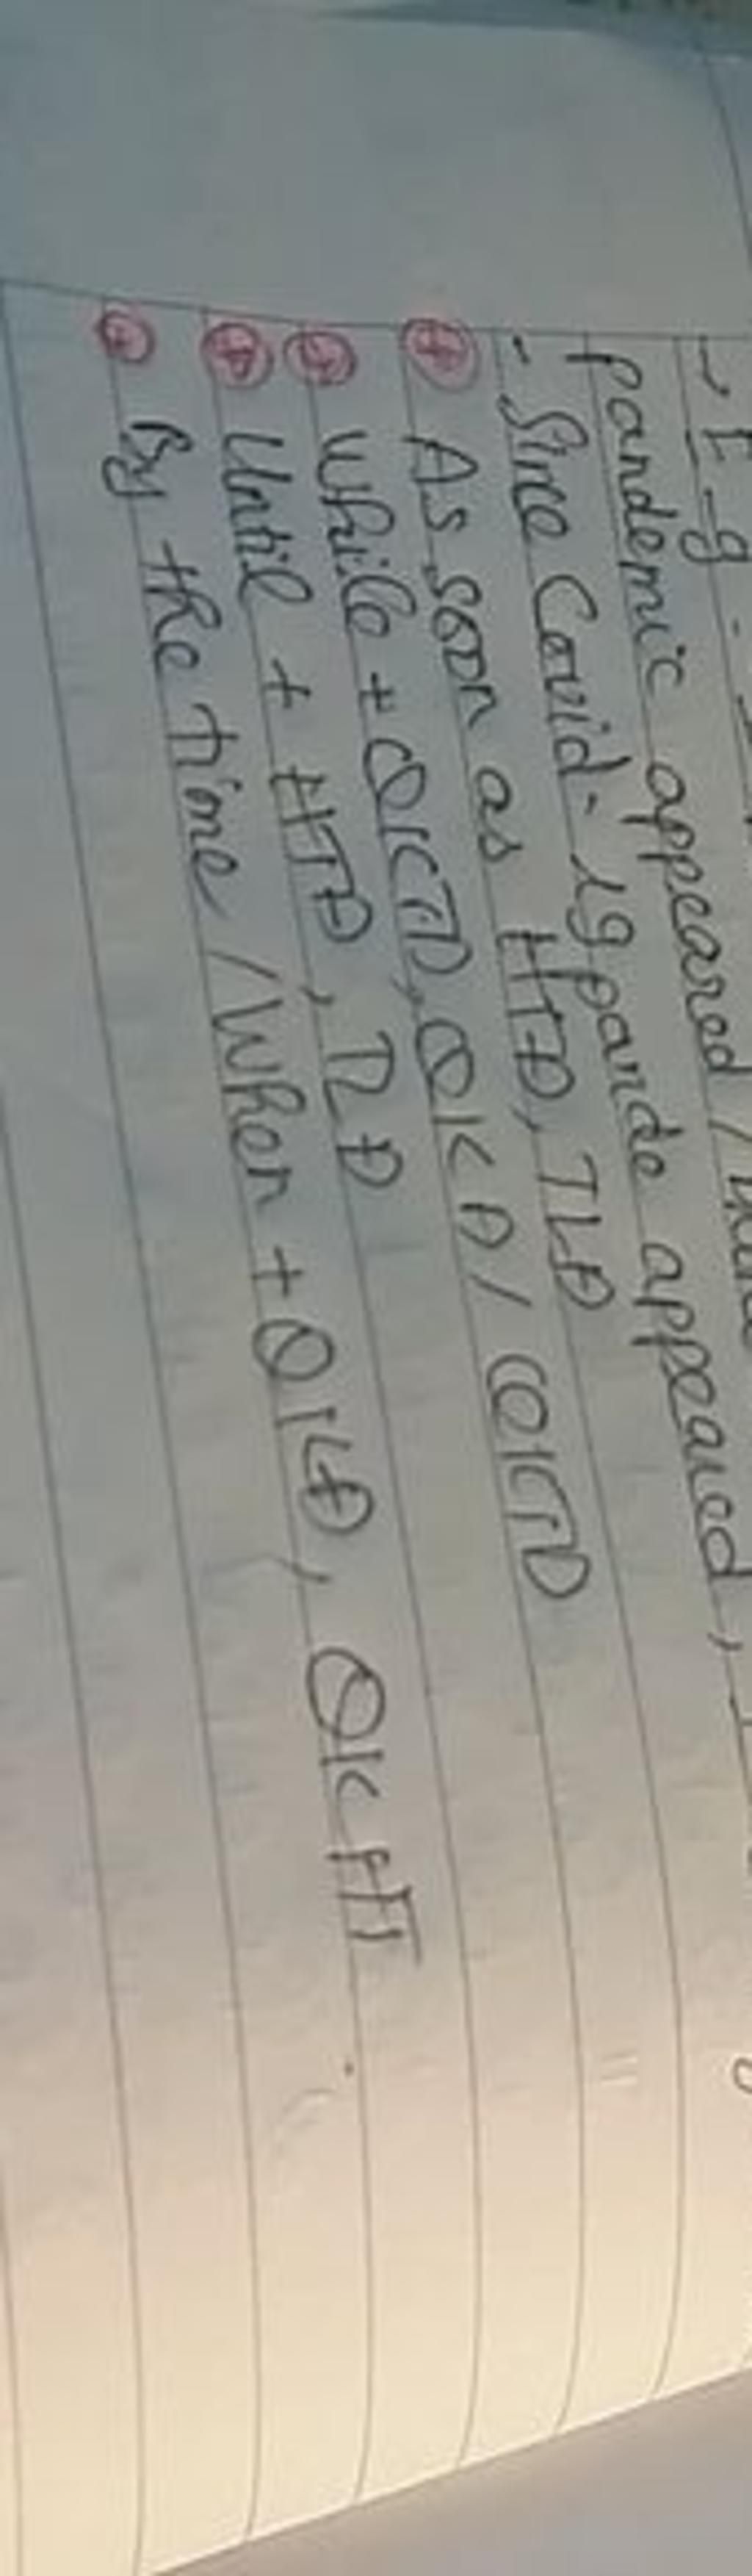 → E.g.
pandemic appeared /
- Since Covid-19 pande appeared,
As soon as HTĐ, TLĐ
While + QKTD, QKĐ / QKTD
Until + HTĐ, TLĐ
By the time / When + QKĐ, QKHT